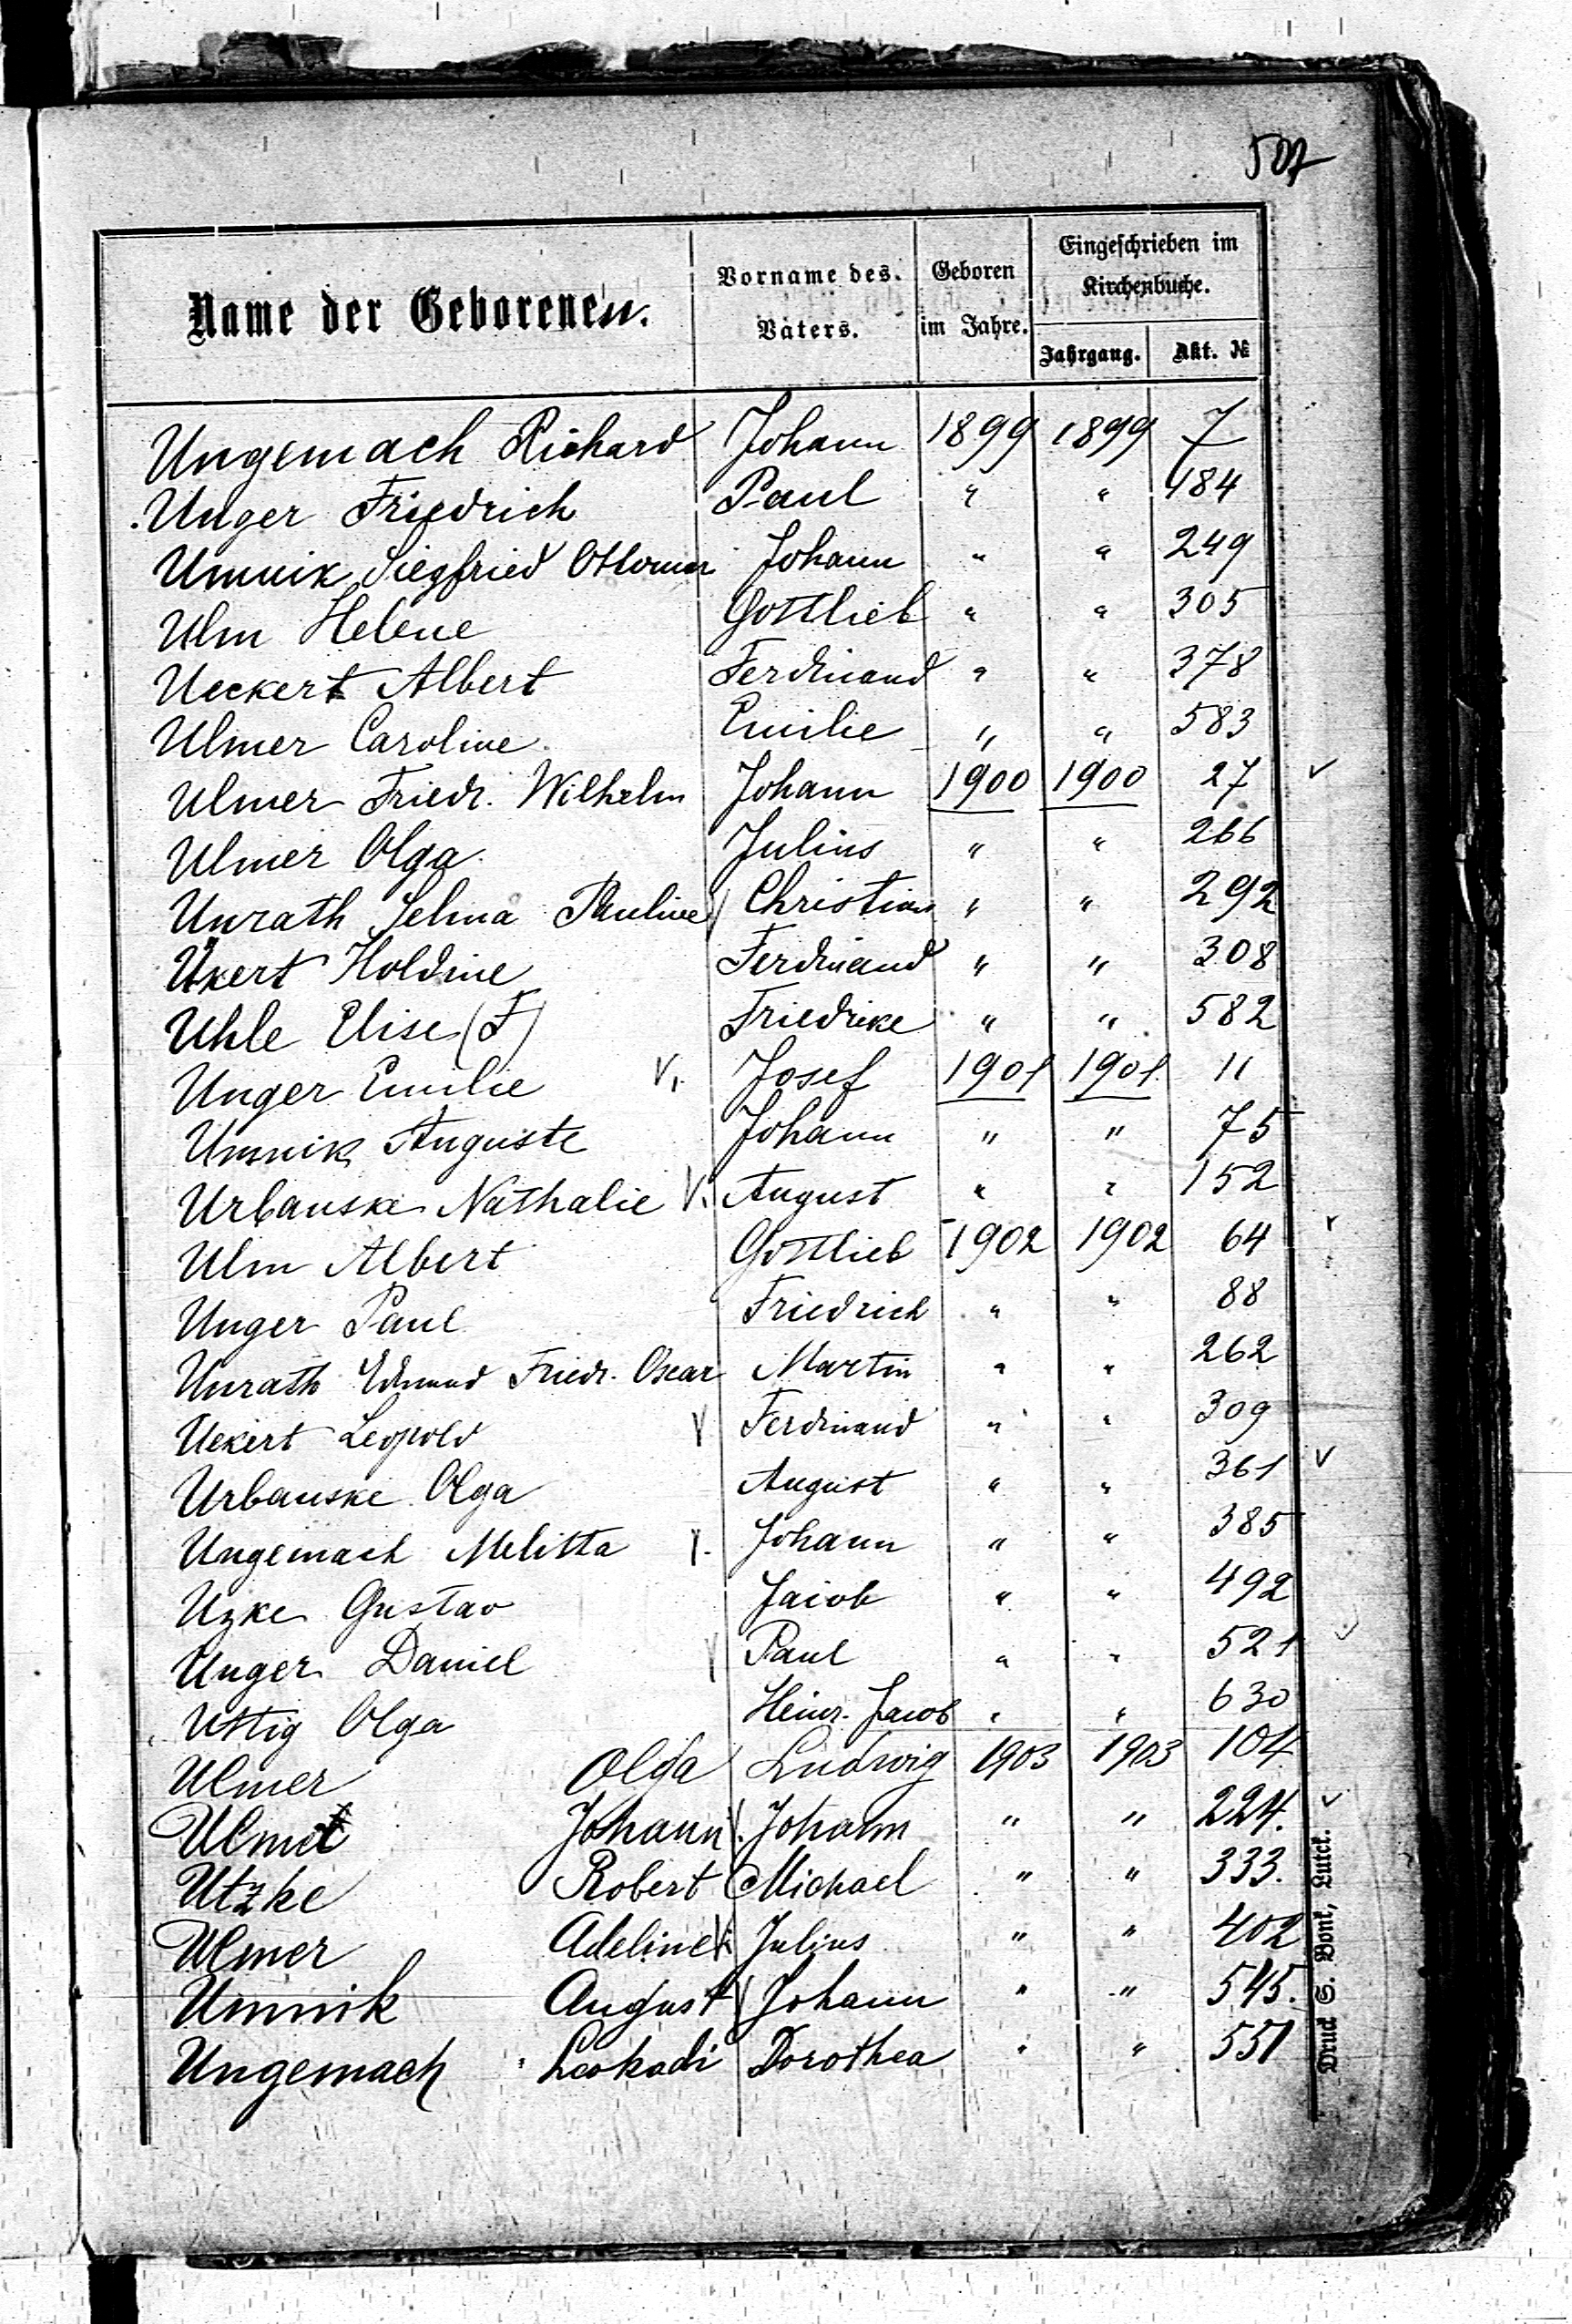 507
Name der Geborenen. Vorname des Vaters. Geboren im Jahre. Eingeschrieben im Kirchenbuche. Jahrgang. Akt. №
Ungemach Richard Johann 1899 1899 7
Unger Friedrich Paul " " 184
Umnik Siegfried Ottomar Johann " " 249
Ulm Helene Gottlieb " " 305
Ueckert Albert Ferdinand " " 378
Ulmer Caroline Emilie " " 583
Ulmer Friedr. Wilhelm Johann 1900 1900 27 ✓
Ulmer Olga Julius " " 266
Unrath Selma Pauline Christian " " 292
Ükert Holdine Ferdinand " " 308
Uhle Elise (F) Friedrike " " 582
Unger Emilie V. Josef 1901 1901 11
Umnik Auguste Johann " " 75
Urbanske Nathalie V. August " " 152
Ulm Albert Gottlieb 1902 1902 64
Unger Paul Friedrich " " 88
Unrath Edmund Friedr. Oscar Martin " " 262
Uekert Leopold V Ferdinand " " 309
Urbanske Olga August " " 361 ✓
Ungemach Melitta V. Johann " " 385
Uzke Gustav Jacob " " 492
Unger Daniel V Paul " " 521 ✓
Uttig Olga Heinr. Jacob " " 630
Ulmer Olga Ludwig 1903 1903 104
Johann V. Johann " " 224. ✓
Utzke Robert Michael " " 333.
Ulmer Adeline V. Julius " " 402
Umnik August V Johann " " 545.
Ungemach Leokadi Dorothea " " 551
Druck S. Bonk, Lutck.